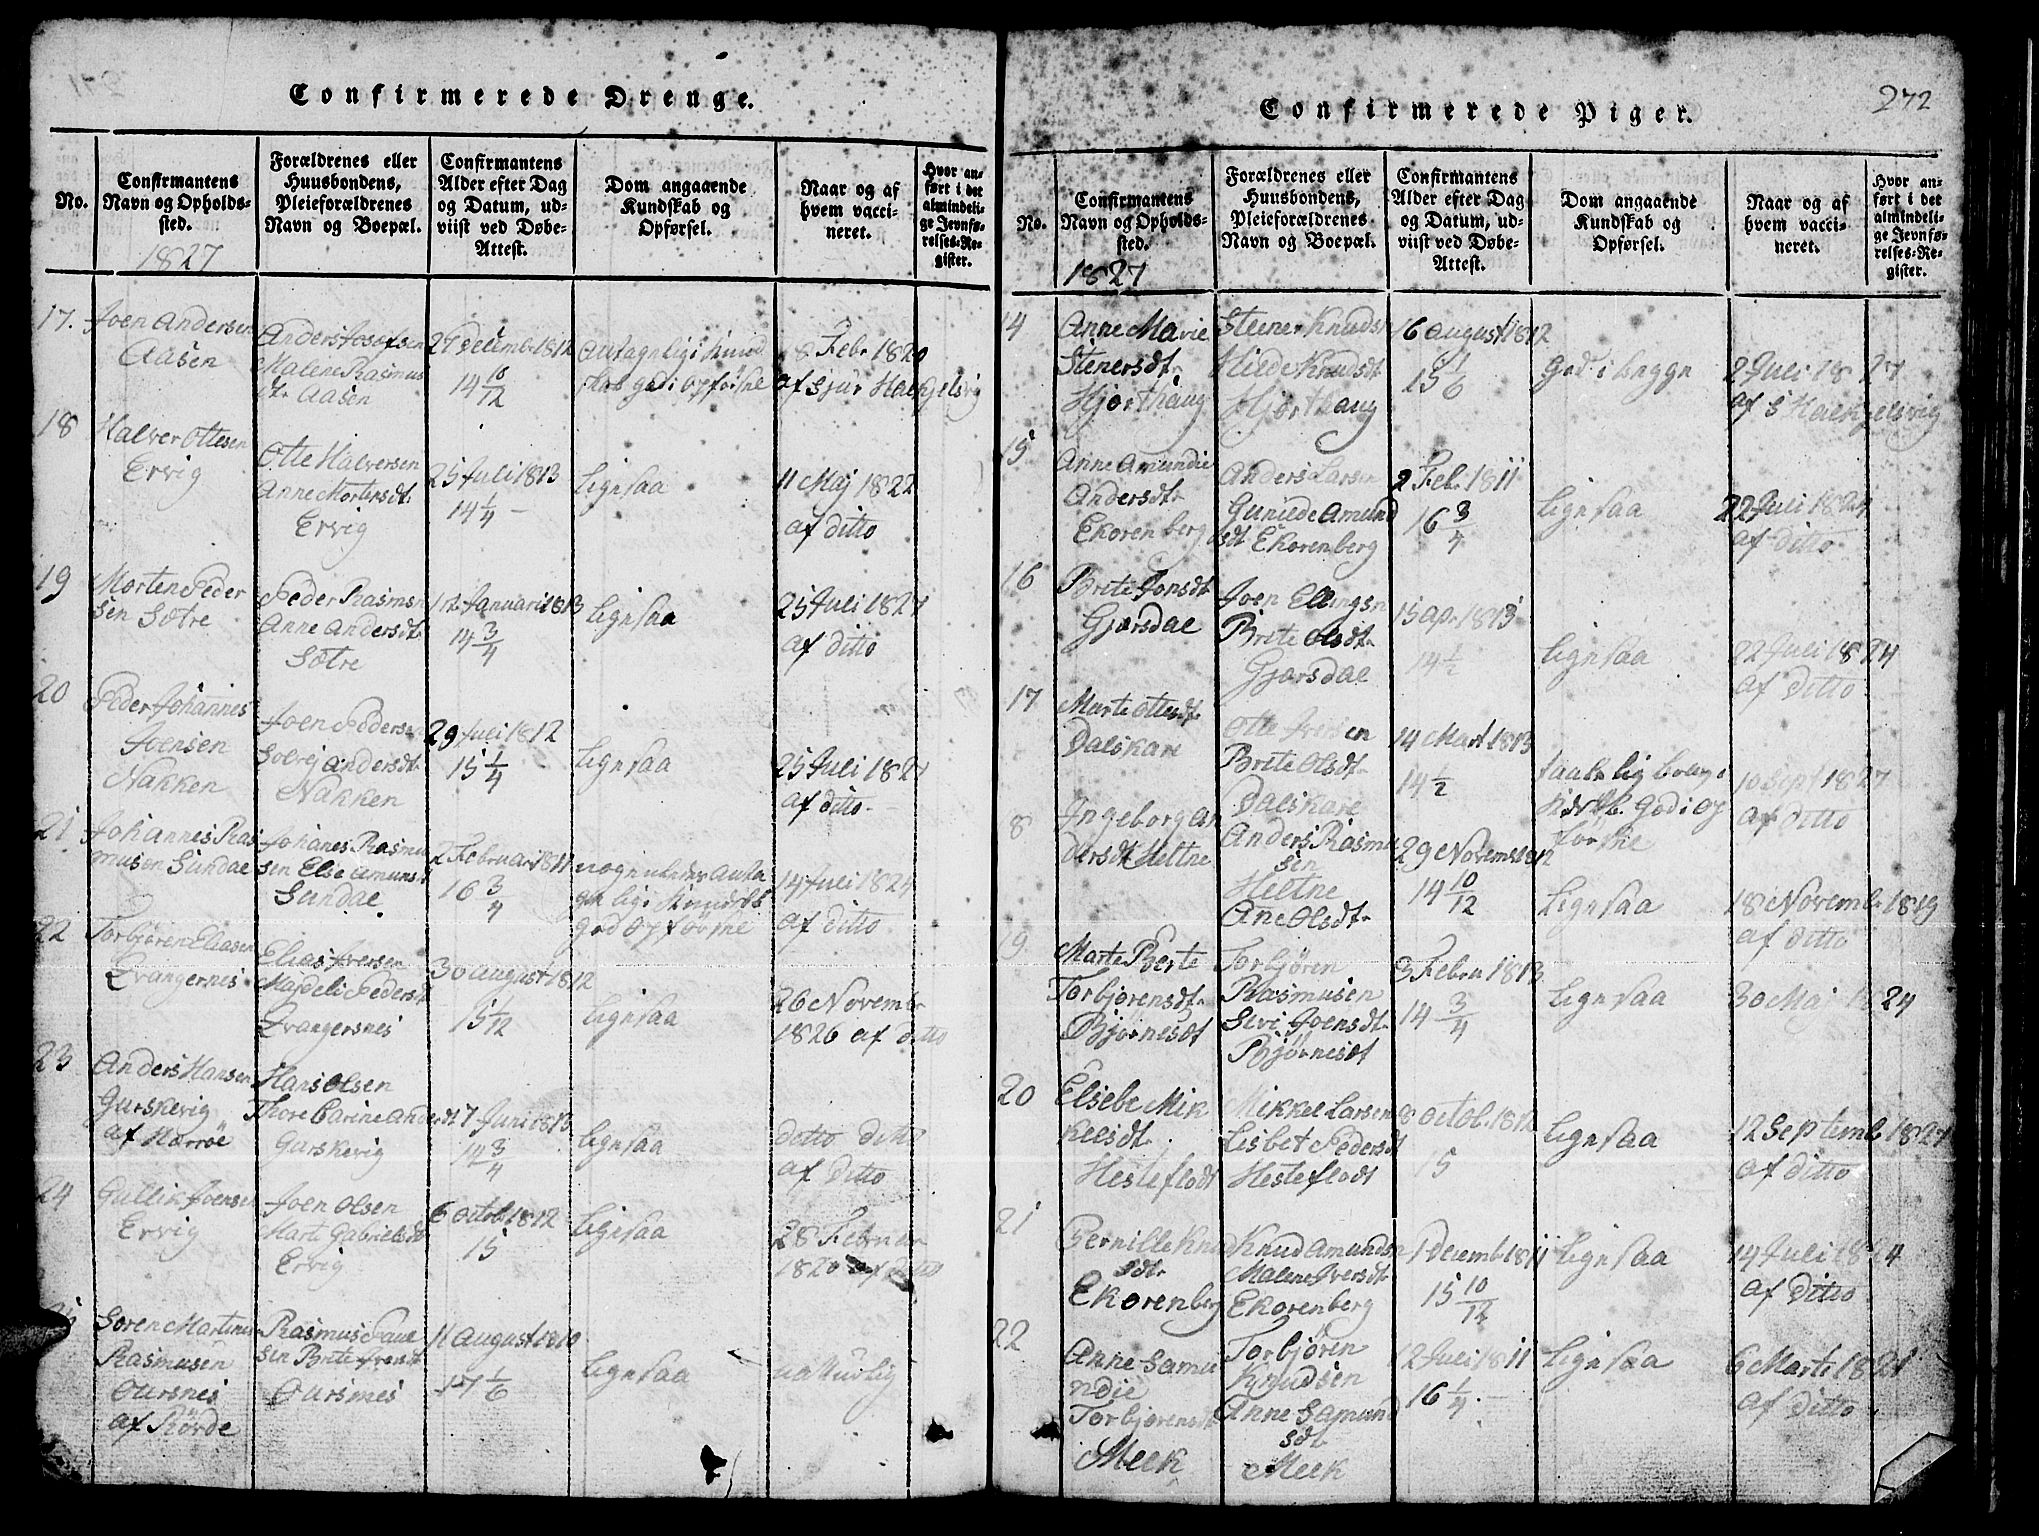 Confirmerede Drenge.
No.
Confirmantens
Navn og Opholds-
sted.
1827
Forældrenes eller
Huusbondens,
Pleieforældrenes
Navn og Boepæl.
Confirmantens
Alder efter Dag
og Datum, ud-
viist ved Døbe-
Attest.
Dom angaaende
Kundskab og
Opførsel.
Naar og af
hvem vacci-
neret.
Hvor an-
ført i det
almindeli-
ge Jevnfø-
relses-Re-
gister.
17.
Joen Andersen
Aasen
Anders Josefsen
Malene Rasmus
dt. Aasen
Decembr 1812
14 10/12
8 Febr 1820
af Sjur
18
Halver Ottesen
Ervig
Otte Halversen
Anne Mortensdt.
Ervig
25 Juli 1813
14 1/4
Ligesaa
11 Maj 1822
af ditto
19
Morten Peder
sen Sætre
Peder Rasmsn
Anne Andersdt.
Sætre
12 Januari 1813
14 3/4
Ligesaa
25 Juli 1827
af ditto
20
Peder Johannes
Joensen
Nakken
Joen Pedersen
Solvej Andersdt.
Nakken
29 Juli 1812
15 1/4
Ligesaa
25 Juli 1827
af ditto
21
Johannes Ras
musen Sundae
Johanes Rasmu
sen Else Amunsdt
Sundae
2 Februari 1811
16 3/4
god opførsle
14 Juli 1824
af ditto
22
Torbjøren Eliasen
Qvangernes
Elias Iversen
Majdeli Pedersdt
Qvangersnes
30 August 1812
15 1/12
Ligesaa
26 Novembr
1826 af ditto
23
Anders Hansen
Gurskevig
af Harrøe
Hans Olsen
Thore Carine Andersdt
Gurskevig
17 Juni 1813
14 3/4
Ligesaa
ditto ditto
af ditto
24
Gullik Joensen
Ervig
Joen Olsen
Marte Gabrielsdt
Ervig
6 Octob 1812
15
Ligesaa
28 Februar
1820 af ditto
Søren Martinus
Rasmusen
Oursnes
af Rørde
Rasmus Paul
sen Brite Iversdt
Oursnes
11 August 1810
17 1/6
Ligesaa
naturlig
272
Confirmerede Piger.
No.
Confirmantens
Navn og Opholds-
sted.
1827
Forældrenes eller
Huusbondens,
Pleieforældrenes
Navn og Boepæl.
Confirmantens
Alder efter Dag
og Datum, ud-
viist ved Døbe-
Attest.
Dom angaaende
Kundskab og
Opførsel.
Naar og af
hvem vacci-
neret.
Hvor an-
ført i det
almindeli-
ge Jevnfø-
relses-Re-
gister.
14
Anne Marie
Stenersdt.
Hjorthaug
Steener Knudsn
Hilde Knudsdt
Hjorthaug
16 August 1812
God i begge
2 Juli 1827
15
Anne Amundie
Andersdt.
Ekorenberg
Anders Larsen
Gunilde Amund
sdt Ekorenberg
2 Febr 1811
16 3/4
Ligesaa
22 Juli 1824
af ditto
16
Brite Jonsdt
Gjærsdae
Joen Ellingsn
Brite Olsdt.
Gjærsdae
15 Apr. 1813
14 1/2
Ligesaa
22 Juli 1824
af ditto
17
Marte Ottesdt.
Dalskare
Otte Iversen
Brite Olsdt.
Dalskare
14 Mart 1813
14 1/2
10 Sept 1827
af ditto
8
Ingeborg An
dersdt Heltne
Anders Rasmu
sen
Heltne
Ane Olsdt.
29 Novemb 1812
14 10/12
Ligesaa
18 Novemb. 1819
af ditto
19
Marte Berte
Torbjørensdt.
Bjørnesdt
Torbjören
Rasmusen
Seri Joensdt.
Bjørnesdt
3 Febru 1813
14 3/4
Ligesaa
30 Maj 1824
20
Elsebe Mik
kelsdt.
Hesteflodt
Mikkel Larsen
Lisbet Pedersdt
Hesteflodt
8 Octob. 1812
15
Ligesaa
12 Septemb 1827
af ditto
21
Pernille Knud
sdt.
Ekorenberg
Knud Amundsn
Malene Iversdt
Ekorenberg
1 Decemb 1811
15 10/12
Ligesaa
14 Juli 1824
af ditto
22
Anne Samu
ndie
Torbjørensdt
Meek
Torbjören
Knudsen
Anne Samund
sdt
Meek
12 Juli 1811
16 1/4
Ligesaa
6 Marti 1821
af ditto